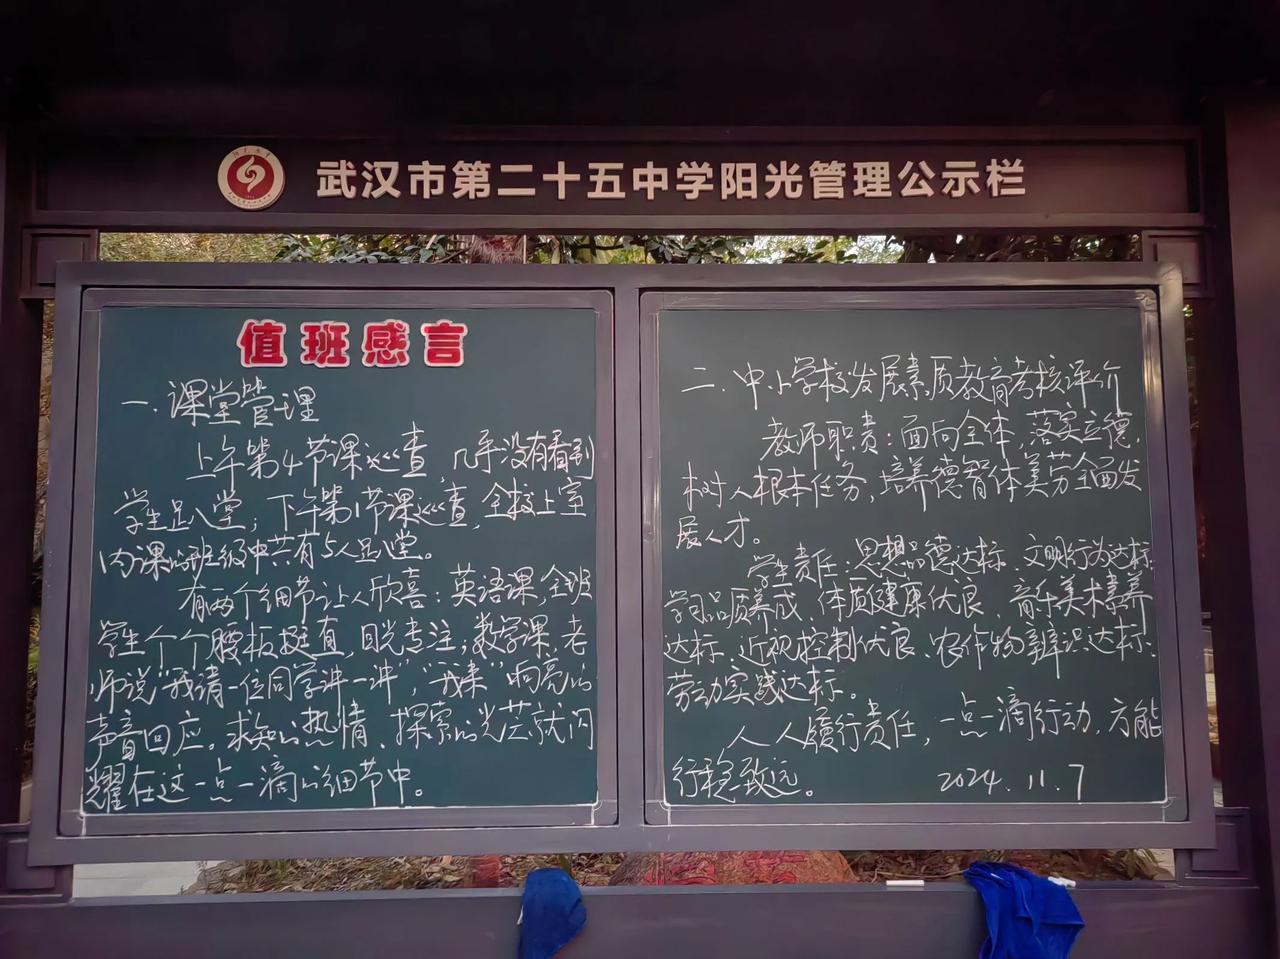 武汉市第二十五中学阳光管理公示栏
值班感言
一.课堂管理
上午第4节课巡查,几乎没有看到
学生趴堂;下午第1节课巡查,全校上室
内课的班级中共有5人趴堂。
有两个细节让人欣喜:英语课,全班
学生个个腰板挺直,目光专注;数学课,老
师说"我请一位同学评一评","我来"响亮的
声音回应。求知的热情、探索的光芒就闪
耀在这一点一滴的细节中。
二.中小学校发展素质教育考核评价
教师职责:面向全体,落实立德
树人根本任务,培养德智体美劳全面发
展人才。
学生责任:思想品德达标、文明行为达标、
学习品质养成、体质健康优良、音乐美术素养
达标、近视控制优良、农作物辨识达标、
劳动实践达标。
人人履行责任,一点一滴行动,方能
行稳致远。 2024.11.7